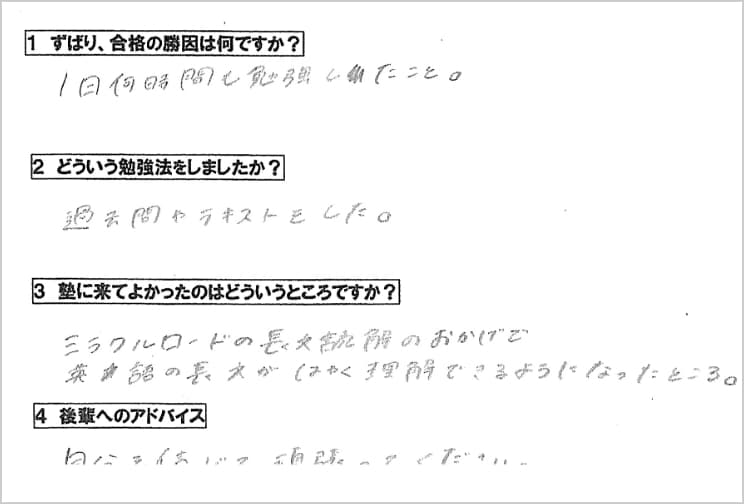 1 ずばり、合格の勝因は何ですか？
1日何時間も勉強したこと。
2 どういう勉強法をしましたか？
過去問やテキストをした。
3 塾に来てよかったのはどういうところですか？
ミラクルロードの長文読解のおかげで
英語の長文がはやく理解できるようになったところ。
4 後輩へのアドバイス
自分を信じて頑張ってください。